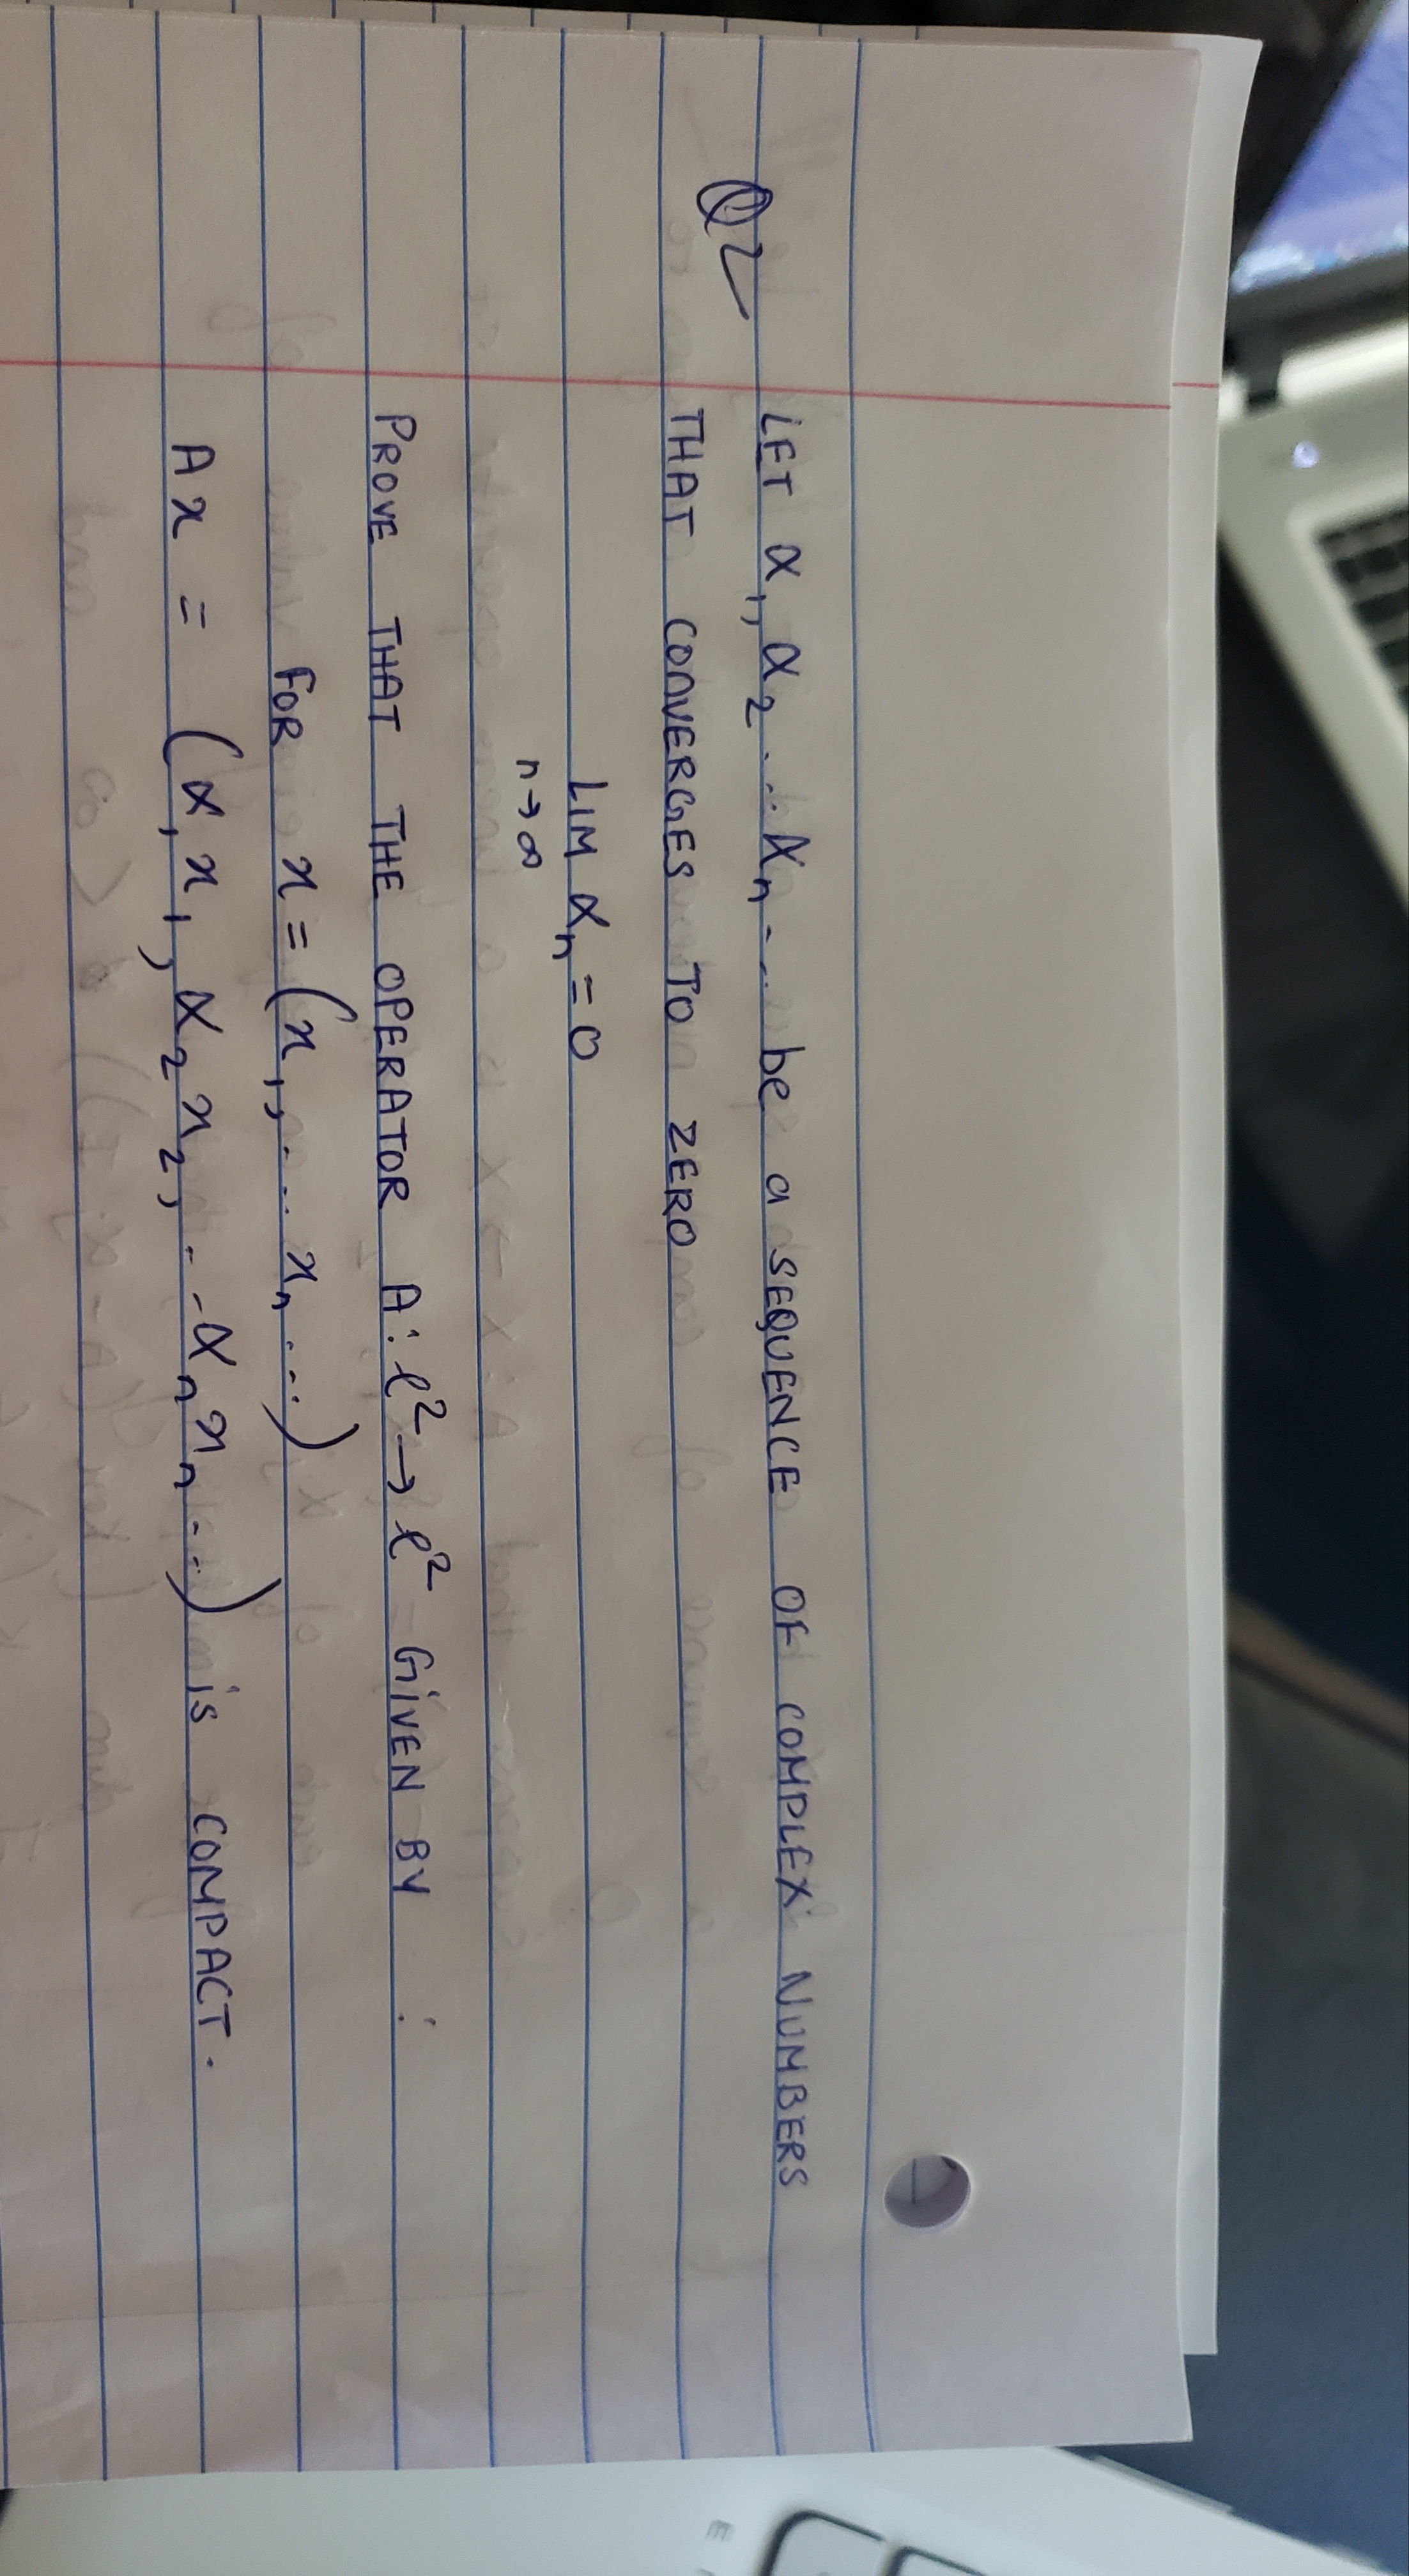 Q2 LET α₁, α₂ ... αₙ ... be a SEQUENCE OF COMPLEX NUMBERS
THAT CONVERGES TO ZERO
LIM αₙ = 0
n→∞
PROVE THAT THE OPERATOR A: ℓ² → ℓ² GIVEN BY :
FOR x = (x₁, ... xₙ ...)
Ax = (α₁x₁, α₂x₂, ... αₙxₙ ...) is COMPACT.